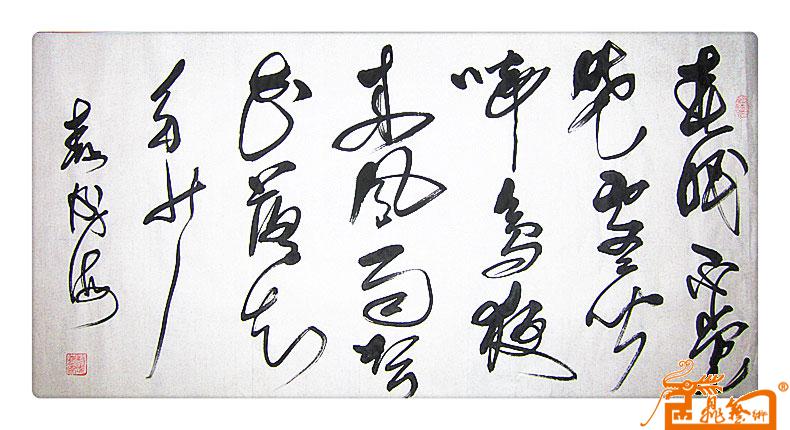 春眠不觉
晓处处闻
啼鸟夜
来风雨声
花落知
多少
藝術